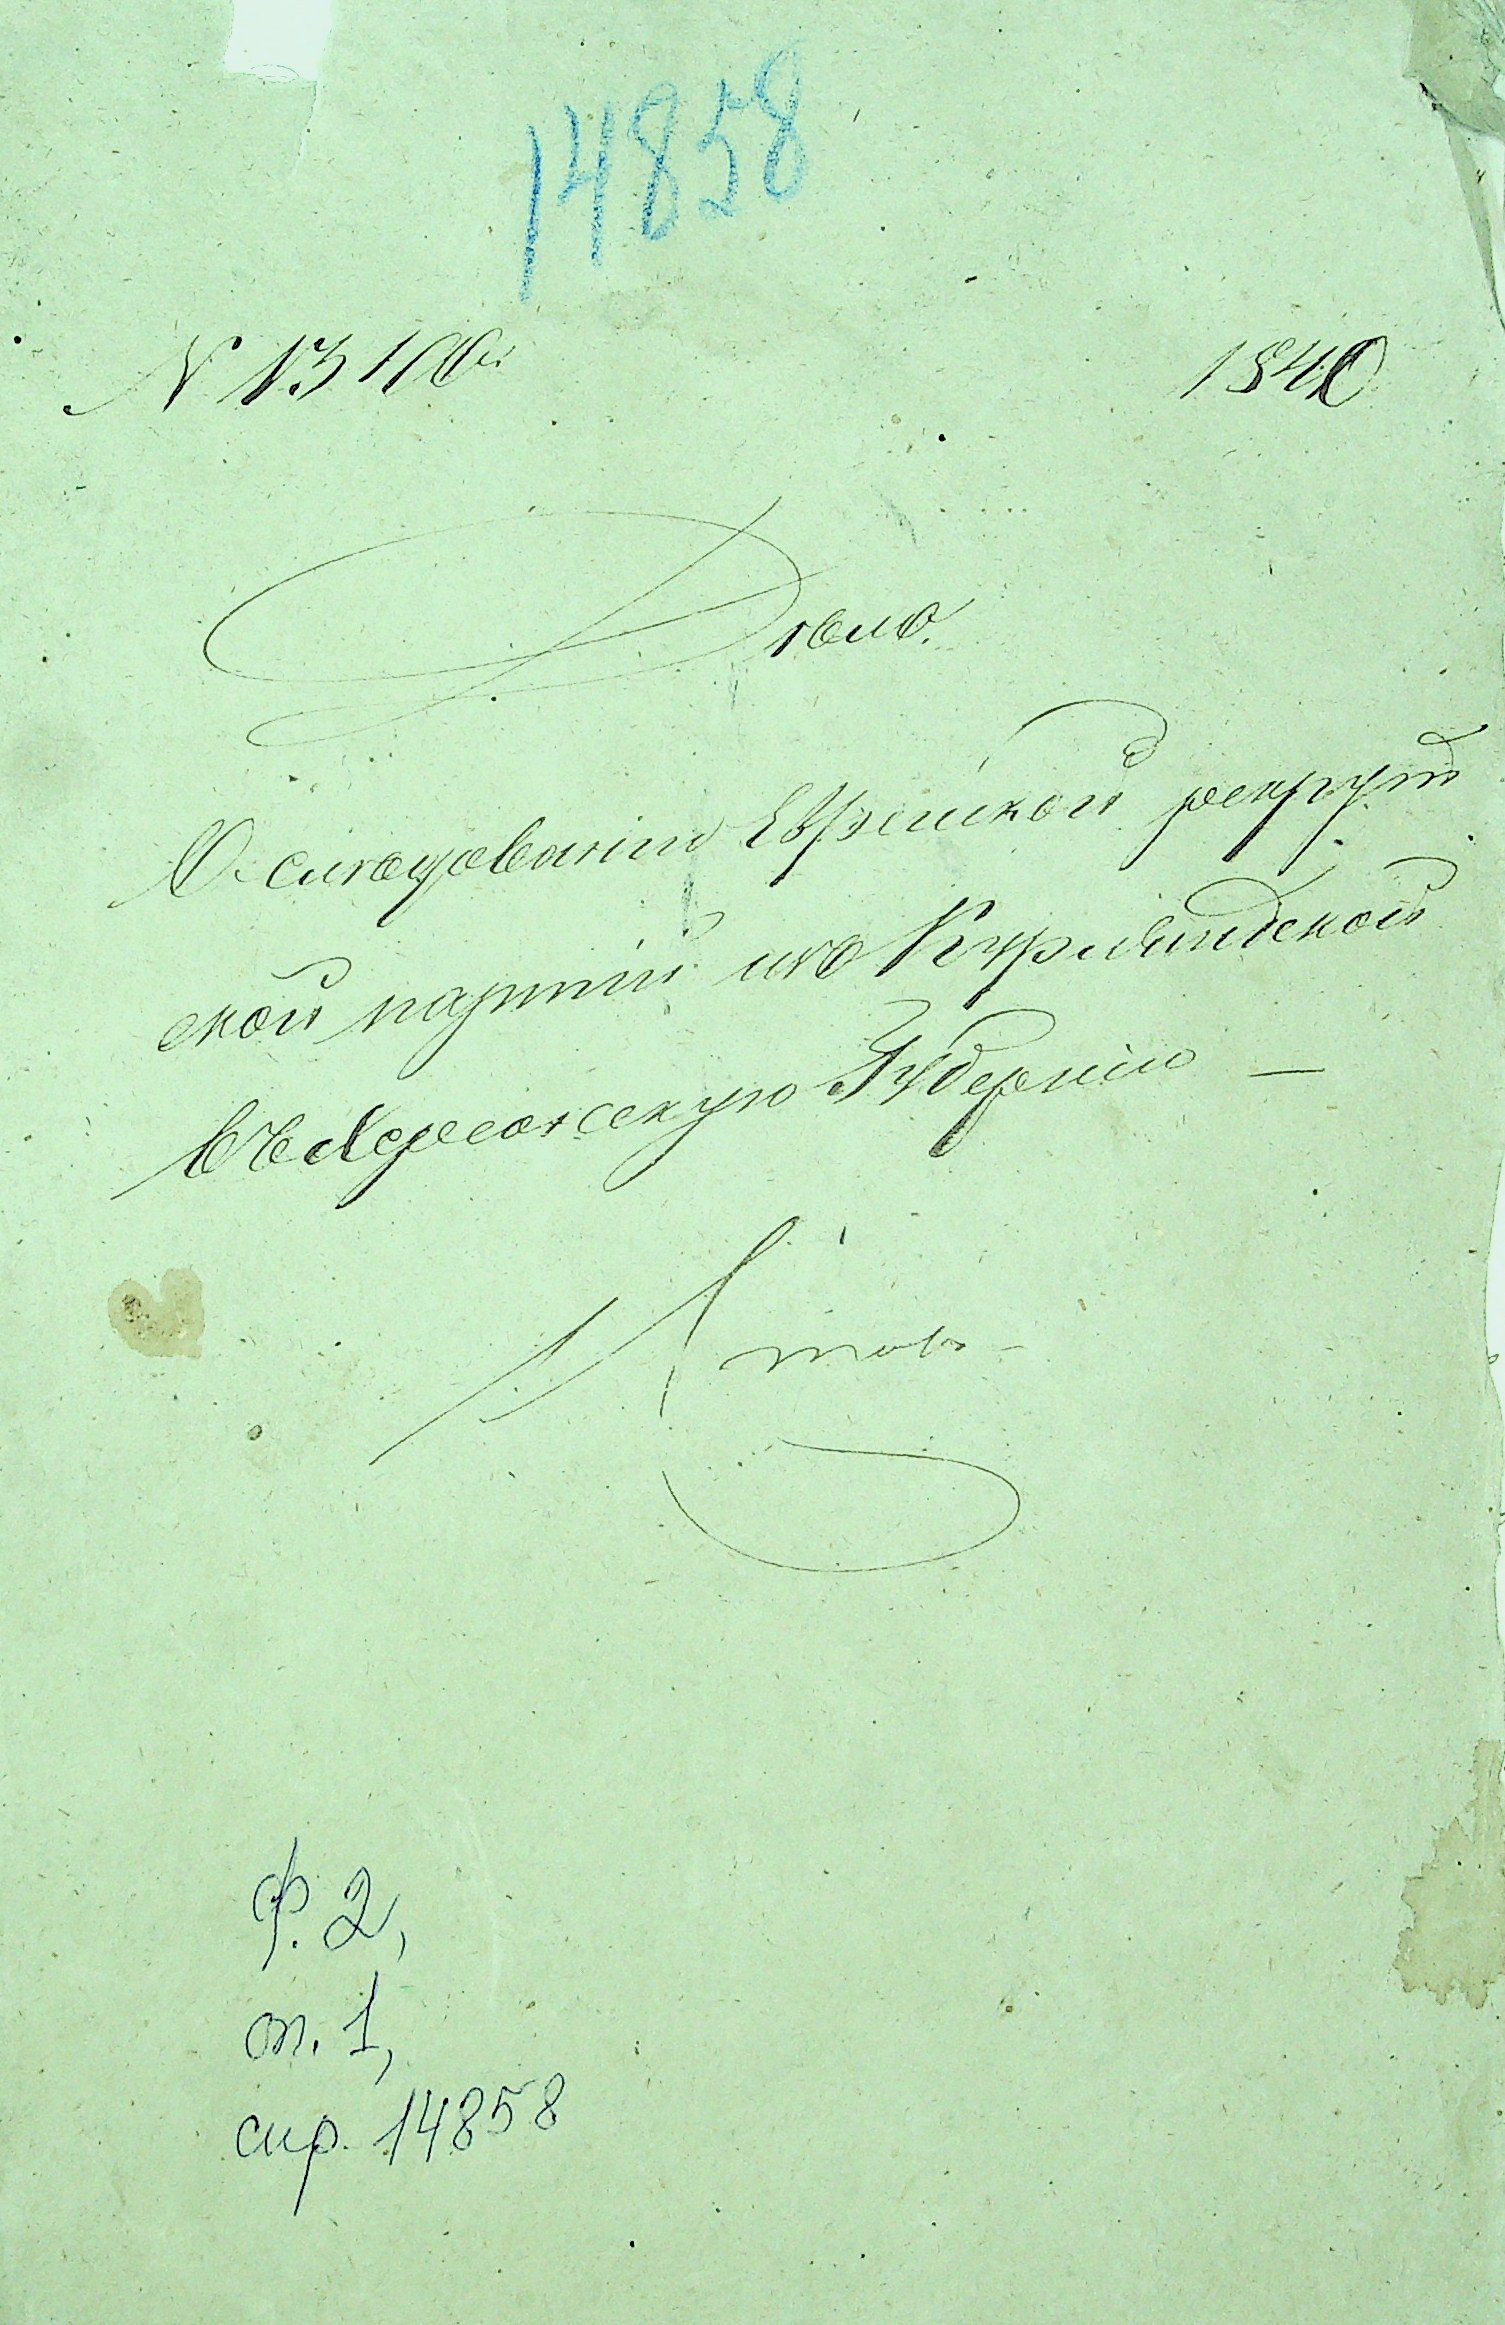 14858
1840
Дѣло.
О слѣдованіи Еврейской рекрут
ской партіи изъ Курляндской
въ Херсонскую Губернію —
Ф. 2,
оп. 1,
спр. 14858